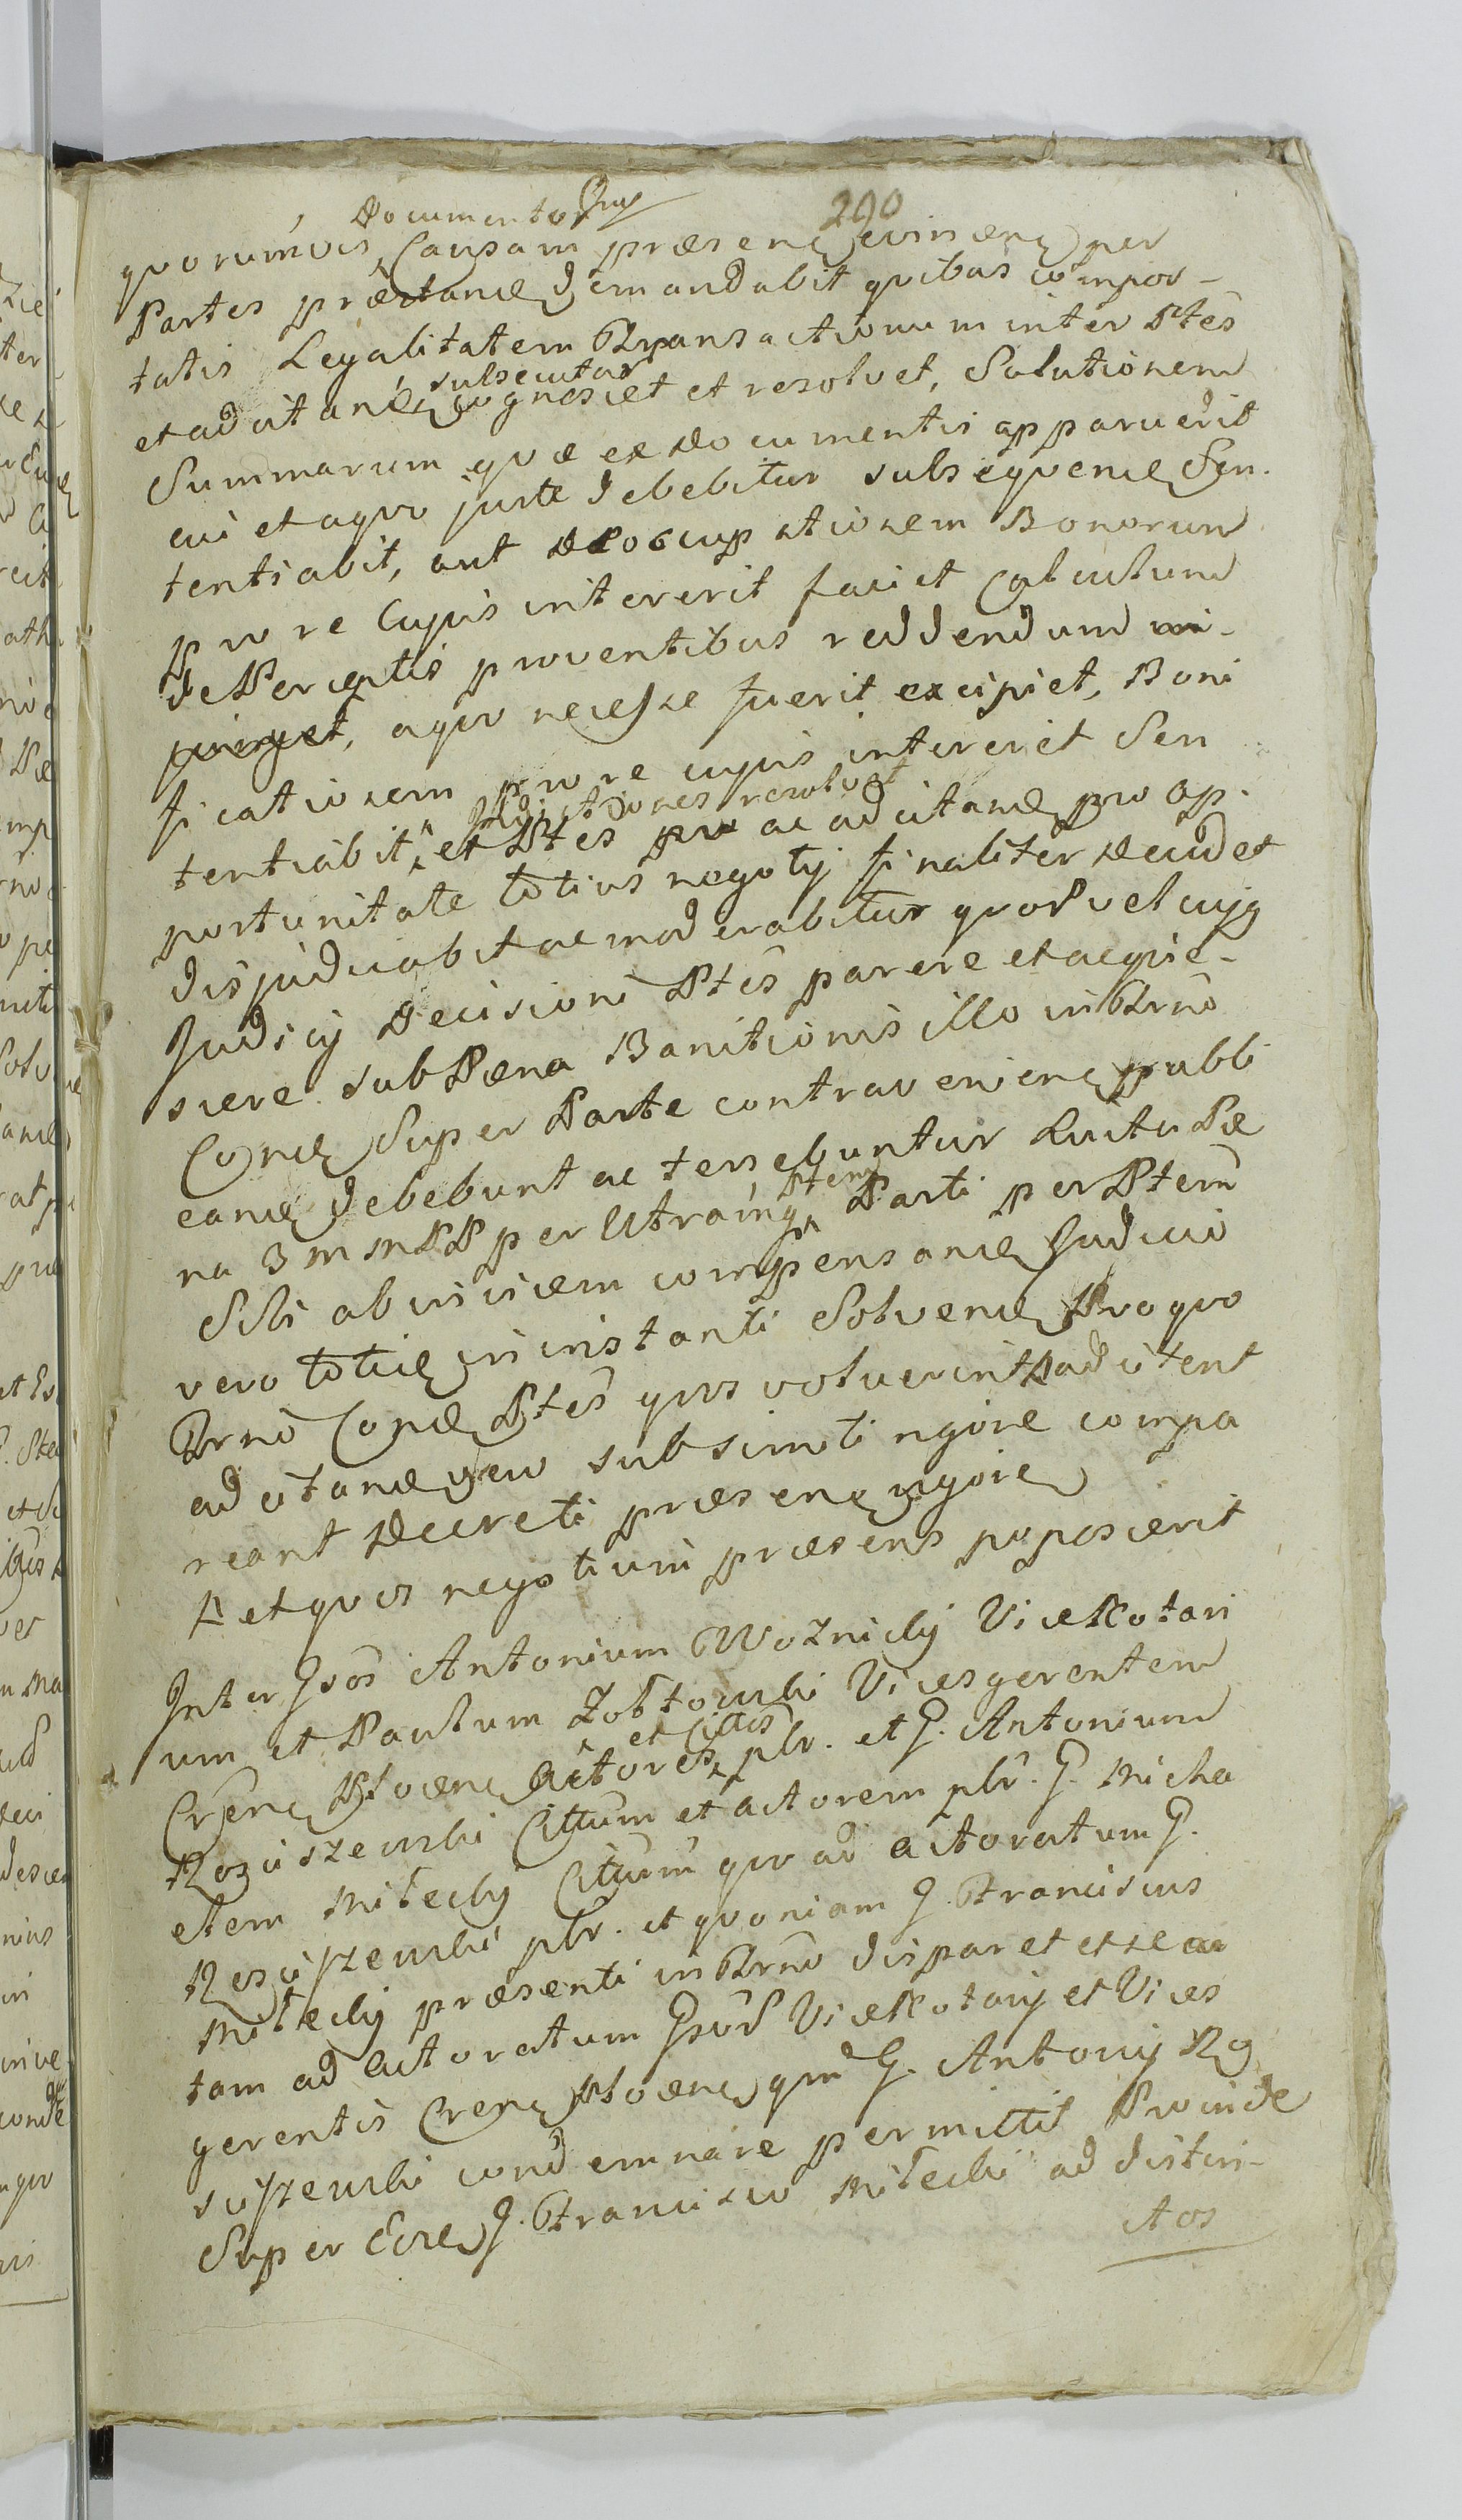 290
Documentor
quorumvis Causam præsenꝫ evincenꝫ per
Partes præ et ad citanꝫ demandabit quibus compor-
tatis Legalitatem Transactionum inter Ptes
et adcitanꝫ subsecutar cognoscet et resolvet, Solutionem
Summarum quæ ex Documentis apparuerit
cui et a quo juste debebitur subsequenꝫ Sen-
tentiabit, aut deoccupationem Bonorum
pro re cujus intererit faciet Calculum
de Perceptis proventibus reddendum in-
junget, a quo necesse fuerit excipiet, Boni
ficationem pro re cujus intererit Sen
tentiabit et Ptes ac adcitanꝫ pro op-
portunitate totius negotij finaliter decidet
disjudicabit ac moderabitur quod vel cujq
Judicij Decisioni Ptes parere et acquie-
scere sub Pæna Banitionis illo in Trno
Conꝫ Super Parte contravenienꝫ publi
canꝫ debebunt ac tenebuntur Luitu Pæ
na 3 m M PP per Utramq Ptem Parti per Ptem
Sibi ab invicem compensanꝫ Judicio
vero totieꝫ in instanti Solvenꝫ Pro quo
Trno Conꝫ Ptes quos voluerint adcitent
adcitanꝫ vero sub simili rigore compa
reant Decreti præsenꝫ rigore
et quos negotium præsens poposcerit
Inter Gsos Antonium Woznicky Vice Notari
um et Paulum Żołtowski Vicesgerentem
Crenꝫ Plocenꝫ Actores et Cittos plr. et G. Antonium
Rosciszewski Cittum et actorem plr. G. Micha
elem Miłecky Cittum quo ad actoratum G.
Rosciszewski plr. et quoniam G. Franciscus
Miłecky præsenti in Trno disparet et se
tam ad Actoratum Gsor Vice Notarij et Vices
gerentis Crenꝫ Plocenꝫ qm G. Antonij Ro
sciszewski condemnare permittit Proinde
Super Eodꝫ G. Francisco Miłecki ad distin-
ctos